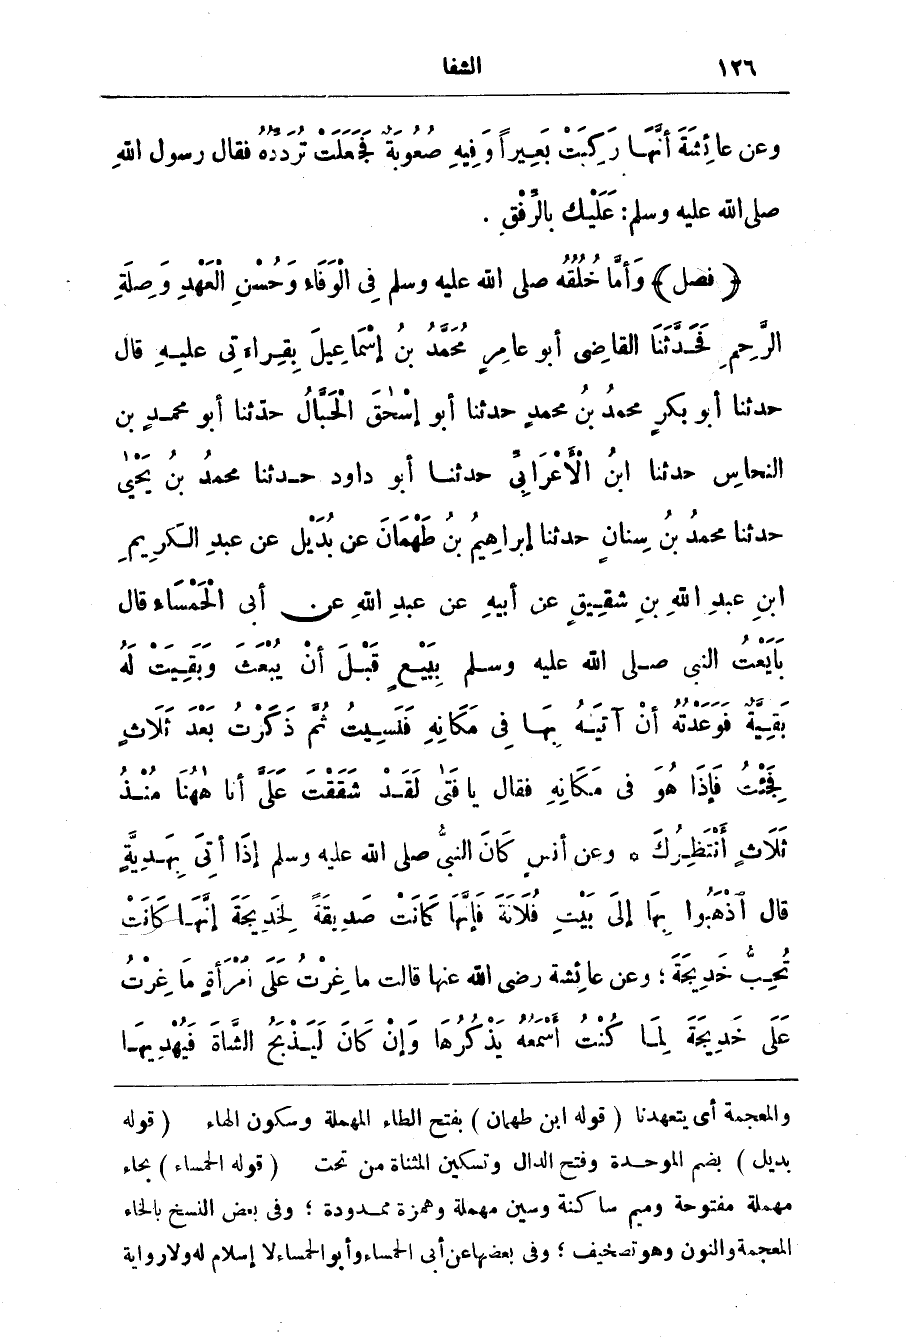 ١٢٦ الشفا
وعن عائِشَةَ أَنَّهَا رَكِبَتْ بَعِيراً وَفِيهِ صُعُوبَةٌ فَجَعَلَتْ تُرَدِّدُهُ فقال رسول اللهِ
صلى الله عليه وسلم: عَلَيْكِ بِالرِّفْقِ .
﴿ فصل ﴾ وَأَمَّا خُلُقُهُ صلى الله عليه وسلم فِى الْوَفَاءِ وَحُسْنِ الْعَهْدِ وَصِلَةِ
الرَّحِمِ فَحَدَّثَنَا القاضِى أبو عامِرٍ مُحَمَّدُ بنُ إِسْمَاعِيلَ بِقِراءتى عليهِ قال
حدثنا أبو بكرٍ محمدُ بنُ محمدٍ حدثنا أبو إِسْحٰقَ الْحَبَّالُ حدّثنا أبو محمدٍ بن
النحاسِ حدثنا ابنُ الْأَعْرَابِيِّ حدثنا أبو داود حدثنا محمدُ بنُ يَحْيٰى
حدثنا محمدُ بنُ سِنانٍ حدثنا إبراهِيمُ بنُ طَهْمَانَ عن بُدَيْلٍ عن عبدِ الكرِيمِ
ابنِ عبدِ اللهِ بنِ شقِيقٍ عن أبيهِ عن عبدِ اللهِ عن أبى الْحَمْسَاءِ قال
بَايَعْتُ النبى صلى الله عليه وسلم بِبَيْعٍ قَبْلَ أَنْ يُبْعَثَ وَبَقِيَتْ لَهُ
بَقِيَّةٌ فَوَعَدْتُهُ أَنْ آتِيَهُ بِهَا فِى مَكَانِهِ فَنَسِيتُ ثُمَّ ذَكَرْتُ بَعْدَ ثَلَاثٍ
فَجِئْتُ فَإِذَا هُوَ فى مَكَانِهِ فقال يا فَتَى لَقَدْ شَقَقْتَ عَلَىَّ أنا هٰهُنَا مُنْذُ
ثَلَاثٍ أَنْتَظِرُكَ ه وعن أنسٍ كَانَ النبىُّ صلى الله عليه وسلم إِذَا أُتِىَ بِهَدِيَّةٍ
قال اَذْهَبُوا بِهَا إِلَى بَيْتِ فُلَانَةَ فَإِنَّهَا كَانَتْ صَدِيقَةً لِخَدِيجَةَ إِنَّهَا كَانَتْ
تُحِبُّ خَدِيجَةَ ؛ وعن عائِشة رضى الله عنها قالت ما غِرْتُ عَلَى اَمْرَأَةٍ مَا غِرْتُ
عَلَى خَدِيجَةَ لِمَا كُنْتُ أَسْمَعُهُ يَذْكُرُهَا وَإِنْ كَانَ لَيَذْبَحُ الشَّاةَ فَيُهْدِيهَا
والمعجمة أى يتعهدنا ( قوله ابن طهمان ) بفتح الطاء المهملة وسكون الهاء ( قوله
بديل ) بضم الموحدة وفتح الدال وتسكين المثناة من تحت ( قوله الحمساء ) بحاء
مهملة مفتوحة وميم ساكنة وسين مهملة وهمزة ممدودة ؛ وفى بعض النسخ بالخاء
المعجمة والنون وهو تصخيف ؛ وفى بعضها عن أبى الحمساء وأبو الحمساء لا إسلام له ولا رواية